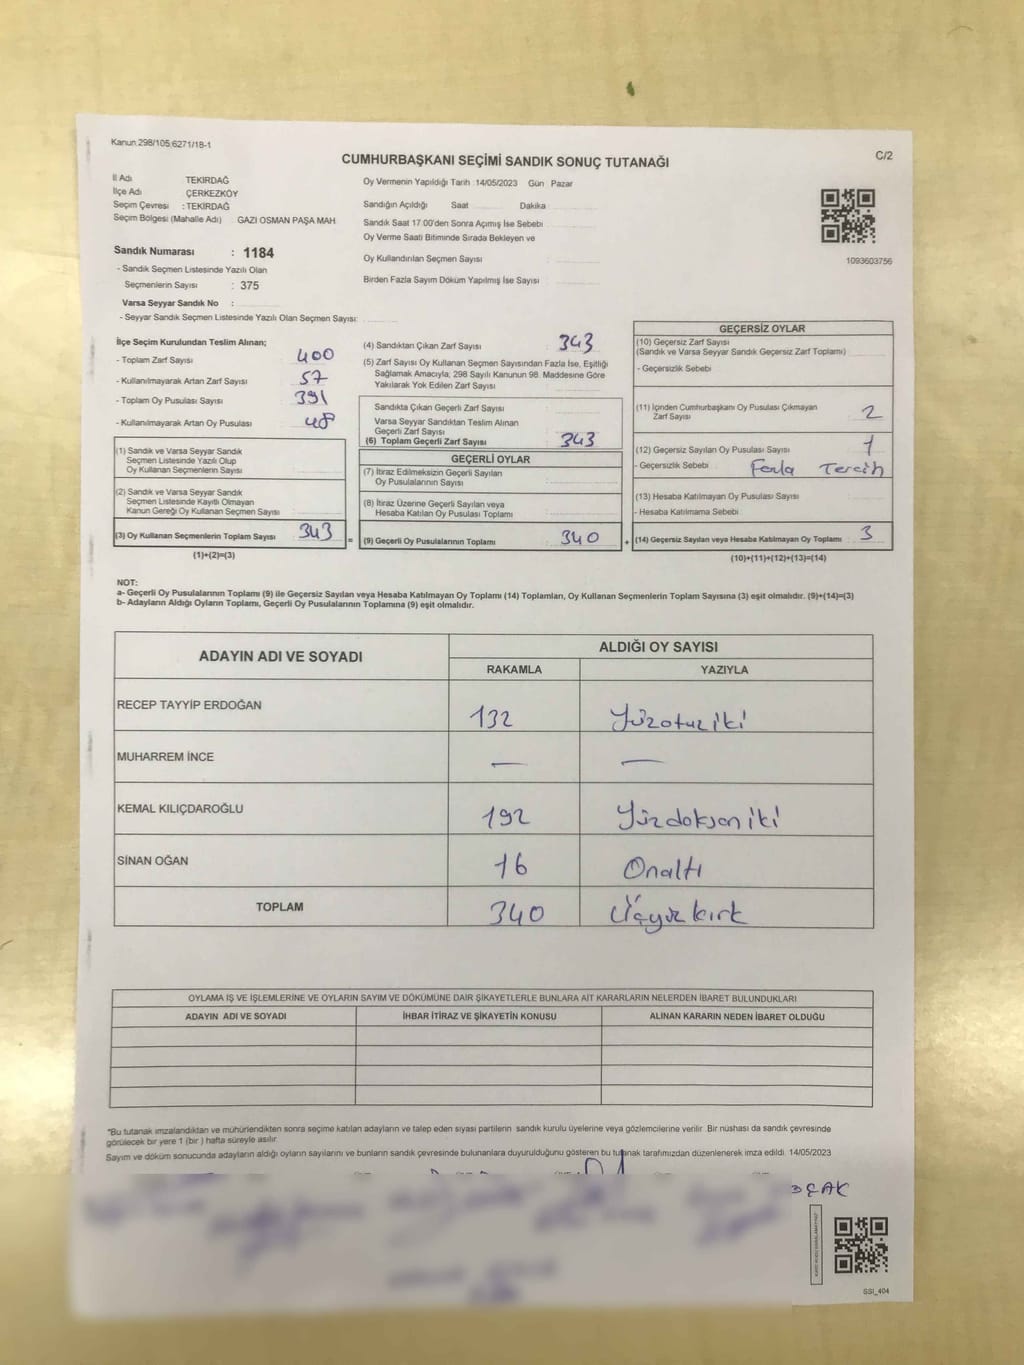 Kanun:298/105;6271/18-1
CUMHURBAŞKANI SEÇİMİ SANDIK SONUÇ TUTANAĞI
C/2
İl Adı TEKİRDAĞ
İlçe Adı ÇERKEZKÖY
Seçim Çevresi : TEKİRDAĞ
Seçim Bölgesi (Mahalle Adı) GAZİ OSMAN PAŞA MAH
Sandık Numarası : 1184
- Sandık Seçmen Listesinde Yazılı Olan
Seçmenlerin Sayısı : 375
Varsa Seyyar Sandık No :
- Seyyar Sandık Seçmen Listesinde Yazılı Olan Seçmen Sayısı:
Oy Vermenin Yapıldığı Tarih :14/05/2023 Gün Pazar
Sandığın Açıldığı Saat Dakika :
Sandık Saat 17.00'den Sonra Açımış İse Sebebi
Oy Verme Saati Bitiminde Sırada Bekleyen ve
Oy Kullandırılan Seçmen Sayısı :
Birden Fazla Sayım Döküm Yapılmış İse Sayısı :
1093603756
İlçe Seçim Kurulundan Teslim Alınan;
- Toplam Zarf Sayısı : 400
- Kullanılmayarak Artan Zarf Sayısı : 57
- Toplam Oy Pusulası Sayısı : 391
- Kullanılmayarak Artan Oy Pusulası : 48
(1) Sandık ve Varsa Seyyar Sandık
Seçmen Listesinde Yazılı Olup
Oy Kullanan Seçmenlerin Sayısı :
(2) Sandık ve Varsa Seyyar Sandık
Seçmen Listesinde Kayıtlı Olmayan
Kanun Gereği Oy Kullanan Seçmen Sayısı :
(3) Oy Kullanan Seçmenlerin Toplam Sayısı : 343 =
(1)+(2)=(3)
(4) Sandıktan Çıkan Zarf Sayısı : 343
(5) Zarf Sayısı Oy Kullanan Seçmen Sayısından Fazla İse, Eşitliği
Sağlamak Amacıyla; 298 Sayılı Kanunun 98. Maddesine Göre
Yakılarak Yok Edilen Zarf Sayısı :
Sandıkta Çıkan Geçerli Zarf Sayısı :
Varsa Seyyar Sandıktan Teslim Alınan
Geçerli Zarf Sayısı :
(6) Toplam Geçerli Zarf Sayısı : 343
GEÇERLİ OYLAR
(7) İtiraz Edilmeksizin Geçerli Sayılan
Oy Pusulalarının Sayısı :
(8) İtiraz Üzerine Geçerli Sayılan veya
Hesaba Katılan Oy Pusulası Toplamı :
(9) Geçerli Oy Pusulalarının Toplamı : 340 +
GEÇERSİZ OYLAR
(10) Geçersiz Zarf Sayısı
(Sandık ve Varsa Seyyar Sandık Geçersiz Zarf Toplamı) :
- Geçersizlik Sebebi :
(11) İçinden Cumhurbaşkanı Oy Pusulası Çıkmayan
Zarf Sayısı : 2
(12) Geçersiz Sayılan Oy Pusulası Sayısı : 1
- Geçersizlik Sebebi : Fazla Tercih
(13) Hesaba Katılmayan Oy Pusulası Sayısı :
- Hesaba Katılmama Sebebi :
(14) Geçersiz Sayılan veya Hesaba Katılmayan Oy Toplamı : 3
(10)+(11)+(12)+(13)=(14)
NOT:
a- Geçerli Oy Pusulalarının Toplamı (9) ile Geçersiz Sayılan veya Hesaba Katılmayan Oy Toplamı (14) Toplamları, Oy Kullanan Seçmenlerin Toplam Sayısına (3) eşit olmalıdır. (9)+(14)=(3)
b- Adayların Aldığı Oyların Toplamı, Geçerli Oy Pusulalarının Toplamına (9) eşit olmalıdır.
ADAYIN ADI VE SOYADI ALDIĞI OY SAYISI
RAKAMLA YAZIYLA
RECEP TAYYİP ERDOĞAN 132 Yüzotuziki
MUHARREM İNCE — —
KEMAL KILIÇDAROĞLU 192 Yüzdoksaniki
SİNAN OĞAN 16 Onaltı
TOPLAM 340 Üçyüzkırk
OYLAMA İŞ VE İŞLEMLERİNE VE OYLARIN SAYIM VE DÖKÜMÜNE DAİR ŞİKAYETLERLE BUNLARA AİT KARARLARIN NELERDEN İBARET BULUNDUKLARI
ADAYIN ADI VE SOYADI İHBAR İTİRAZ VE ŞİKAYETİN KONUSU ALINAN KARARIN NEDEN İBARET OLDUĞU
*Bu tutanak imzalandıktan ve mühürlendikten sonra seçime katılan adayların ve talep eden siyasi partilerin sandık kurulu üyelerine veya gözlemcilerine verilir .Bir nüshası da sandık çevresinde
görülecek bir yere 1 (bir ) hafta süreyle asılır.
Sayım ve döküm sonucunda adayların aldığı oyların sayılarını ve bunların sandık çevresinde bulunanlara duyurulduğunu gösteren bu tutanak tarafımızdan düzenlenerek imza edildi. 14/05/2023
SSI_404